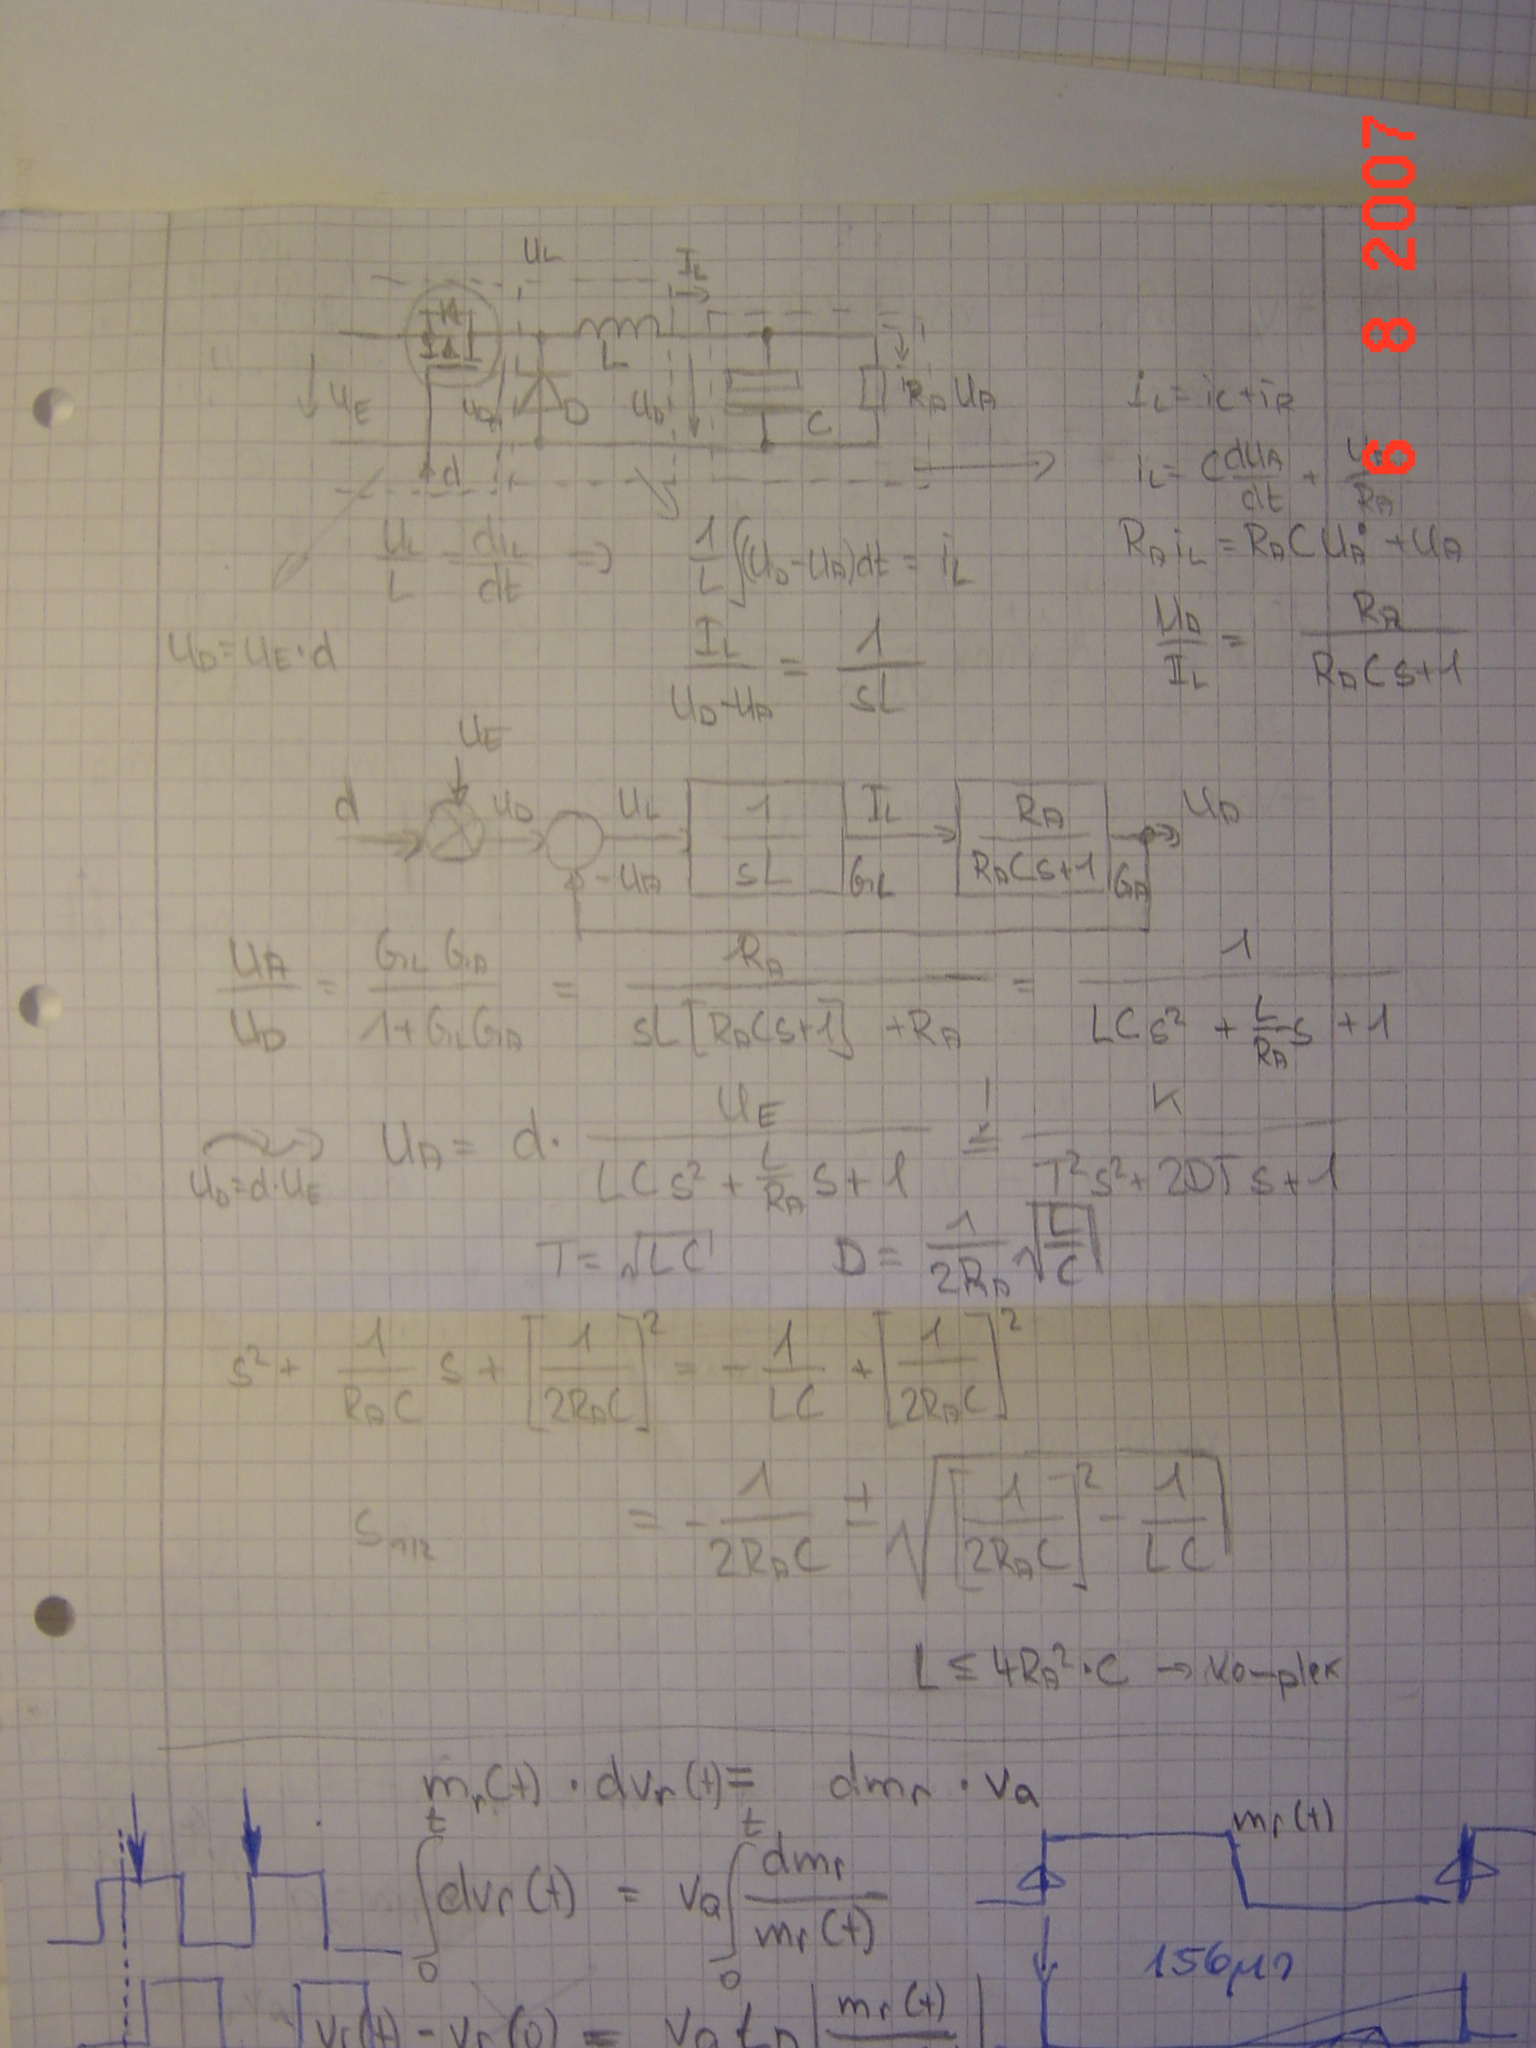 6 8 2007
U_L I_L
L
U_E U_D D U_D C R_A U_A
d
i_L = i_C + i_R
i_L = C dU_A/dt + U_A/R_A
U_L/L = di_L/dt ⇒ 1/L ∫(U_D - U_A)dt = i_L
R_A i_L = R_A C U̇_A + U_A
U_D = U_E · d
I_L/(U_D - U_A) = 1/(sL)
U_A/I_L = R_A/(R_A C s + 1)
U_E
d U_D U_L 1/(sL) I_L R_A/(R_A C s + 1) U_A
-U_A G_L G_A
U_A/U_D = G_L G_A/(1 + G_L G_A) = R_A/(sL[R_A C s + 1] + R_A) = 1/(LCs² + L/R_A s + 1)
U_D = d·U_E
U_A = d · U_E/(LCs² + L/R_A s + 1) =! K/(T²s² + 2DTs + 1)
T = √(LC) D = 1/(2R_A) √(L/C)
s² + 1/(R_A C) s + [1/(2R_A C)]² = - 1/(LC) + [1/(2R_A C)]²
s_1/2 = - 1/(2R_A C) ± √([1/(2R_A C)]² - 1/(LC))
L ≤ 4R_A² · C → komplex
m_r(t) · dv_r(t) = dm_r · v_a
m_r(t)
∫_0^t dv_r(t) = v_a ∫_0^t dm_r/m_r(t)
156µs
v_r(t) - v_r(0) = v_a ln |m_r(t)